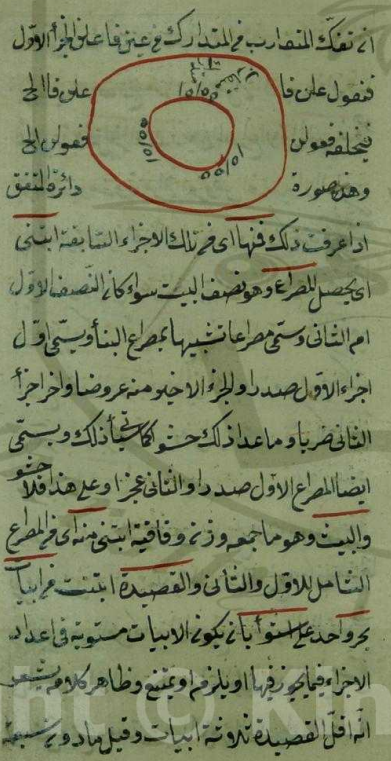 ان تفك المتقارب فى المتدارك فمن عين فاعلن الجزأ الاول
فتقول علن فا علن فا الخ
فيخلفه فعولن فعولن الخ
وهذه صورة دائرة المتفق
اذا عرفت ذلك فمنها اى فمن تلك الاجزاء السابقة ابتنى
اى يحصل المصراع وهو نصف البيت سواء كان النصف الاول
ام الثانى وسمى مصراعا تشبيها بمصراع البناء ويسمى اول
اجزاء الاول صدرا والجزء الاخير منه عروضا واخر اجزأ
الثانى ضربا وما عدا ذلك حشو كائنا ذلك ويسمى
ايضا المصراع الاول صدرا والثانى عجزا وعلى هذا فلا حشو
والبيت وهو ما جمعه وزن وقافية ابتنى منه اى من المصراع
الشامل للاول والثانى والقصيدة ابتنت من ابيات
بحر واحد على استواء بان يكون الابيات مستوية فى اعداد
الاجزاء فيما يجوز فيها او يلزم او يمتنع وظاهر كلامه يشعر
انه اقل القصيدة ثلاثة ابيات وقيل ما دون سبعة